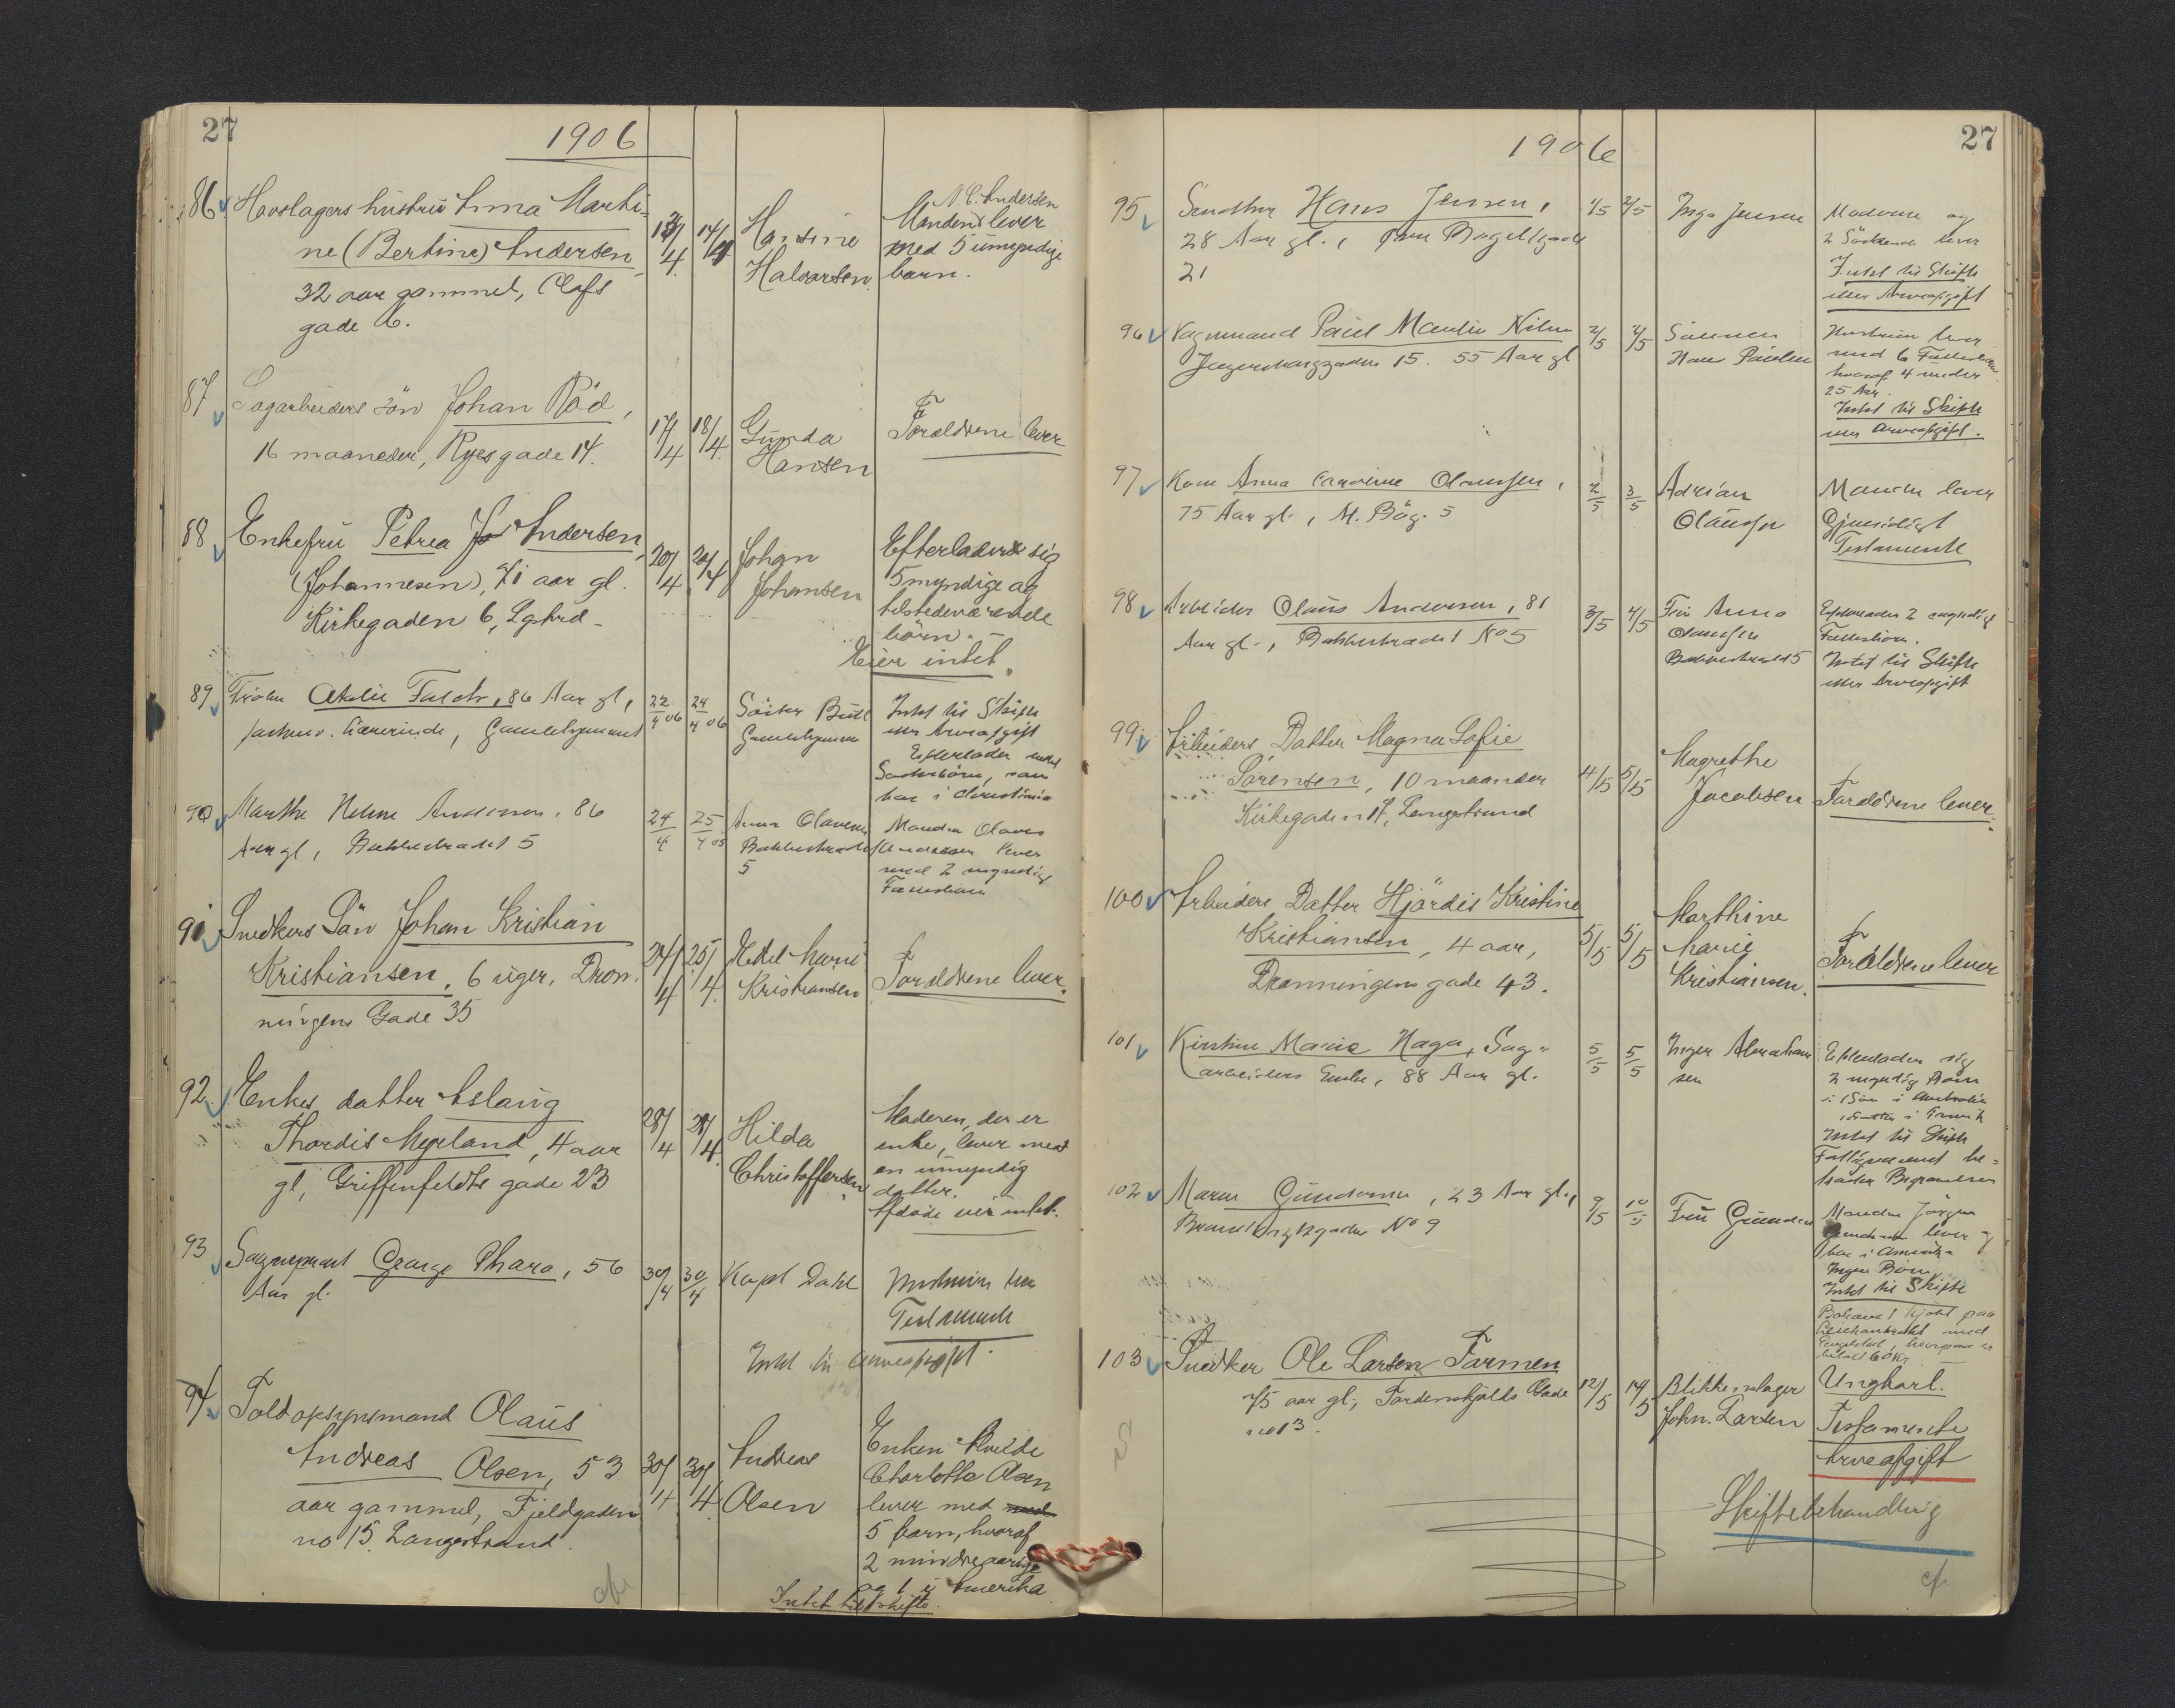 27
1906
86 Hovslagers hustru Anna Marti-
ne (Bertine) Andersen
32 aar gammel, Olafs
gade 6.
13/4
14/4
Hansine
Halvorsen
N. C. Andersen
Manden lever
med 5 umyndige
barn.
87 Sagarbeiders sön Johan Röd,
16 maaneder, Ryesgade 14.
17/4
18/4
Gunda
Hansen
Forældrene lever
88 Enkefru Petrea Andersen
(Johannesen), 71 aar gl.
Kirkegaden 6, Lgstrd.
20/4
Johan
Johansen
Efterlader sig
5 myndige og
tilstedeværende
børn.
Eier intet.
89 Fröken Falch, 86 Aar gl,
22/4 06
24/4 06
Söster
Intet til Skifte
eller Arveafgift
Efterlader
Søskenbörn, som
bor i Christiania
90 Marthe Helene Andersen, 86
Aar gl, Bakkestrædet 5
24/4
25/4
Anna
Bakkestrædet
5
Manden Olaves
Andersen lever
med 2 myndige
Fællesbørn
91 Snedkers Sön Johan Kristian
Kristiansen, 6 uger, Dron-
ningens Gade 35
24/4
25/4
Marie
Kristiansen
Forældrene lever.
92 Enkes datter Aslaug
Thordis Myrland, 4 aar
gl, Griffenfeldts gade 23
28/4
Hilda
Christoffersen
Moderen, der er
enke, lever med
en umyndig
datter.
Afdøde eier intet.
93 George, 56
Aar gl.
30/4
30/4
Kapt Dahl
Hustruen lever
Testamente
Intet til Arveafgift.
94 Toldopsynsmand Olaus
Andreas Olsen, 53
aar gammel, Fjeldgaden
no 15. Langestrand.
30/4
30/4
Andreas
Olsen
Enken
Charlotte Olsen
lever med
5 barn, hvoraf
2 mindreaarige
og 1 i Amerika
Intet til skifte.
27
1906
95 Hans Jensen,
28 Aar gl.,
21
2/5
Inga Jensen
Moderen og
2 Söskende lever
Intet til Skifte
eller Arveafgift
96 Vognmand Paul Martin Nilsen
15. 55 Aar gl
2/5
2/5
Sönnen
Hans Paulsen
Hustruen lever
med 6 Fællesbørn
hvoraf 4 under
25 Aar.
Intet til Skifte
eller Arveafgift.
97 Kone Anna Olaussen,
75 Aar gl., 5
2/5
3/5
Adrian
Olaussen
Manden lever
Gjensidigt
Testamente
98 Arbeider Olaus Andersen, 81
Aar gl., Bakkestrædet No 5
3/5
4/5
Fru Anna
Bakkestrædet 5
Efterlader 2 myndige
Fællesbørn.
Intet til Skifte
eller Arveafgift
99 Arbeiders Datter Magna Sofie
Sörensen, 10 maaneder
Kirkegaden 17, Langestrand
4/5
5/5
Magrethe
Jacobsen
Forældrene lever.
100 Arbeiders Datter Hjördis Kristine
Kristiansen, 4 aar,
Dronningens gade 43.
5/5
5/5
Marthine
Marie
Kristiansen.
Forældrene lever
101 Kirstine Marie Haga, Sag-
arbeiders Enke, 88 Aar gl.
5/5
5/5
Inger Abraham
sen
Efterlader sig
2 myndige Børn
1 Sön i Australia
Intet til Skifte
Fattigvæsenet be-
koster Begravelsen
102 Maren Gundersen, 23 Aar gl.,
No 9
9/5
10/5
Fru Gundersen
Manden Jörgen
Gundersen lever og
bor i Amerika
Ingen Börn
Intet til Skifte
103 Snedker Ole Larsen Farmen
75 aar gl., Tordenskjolds Gade
no 13.
12/5
14/5
Blikkenslager
John. Larsen
Ungkarl.
Testamente
Arveafgift
Skiftebehandling